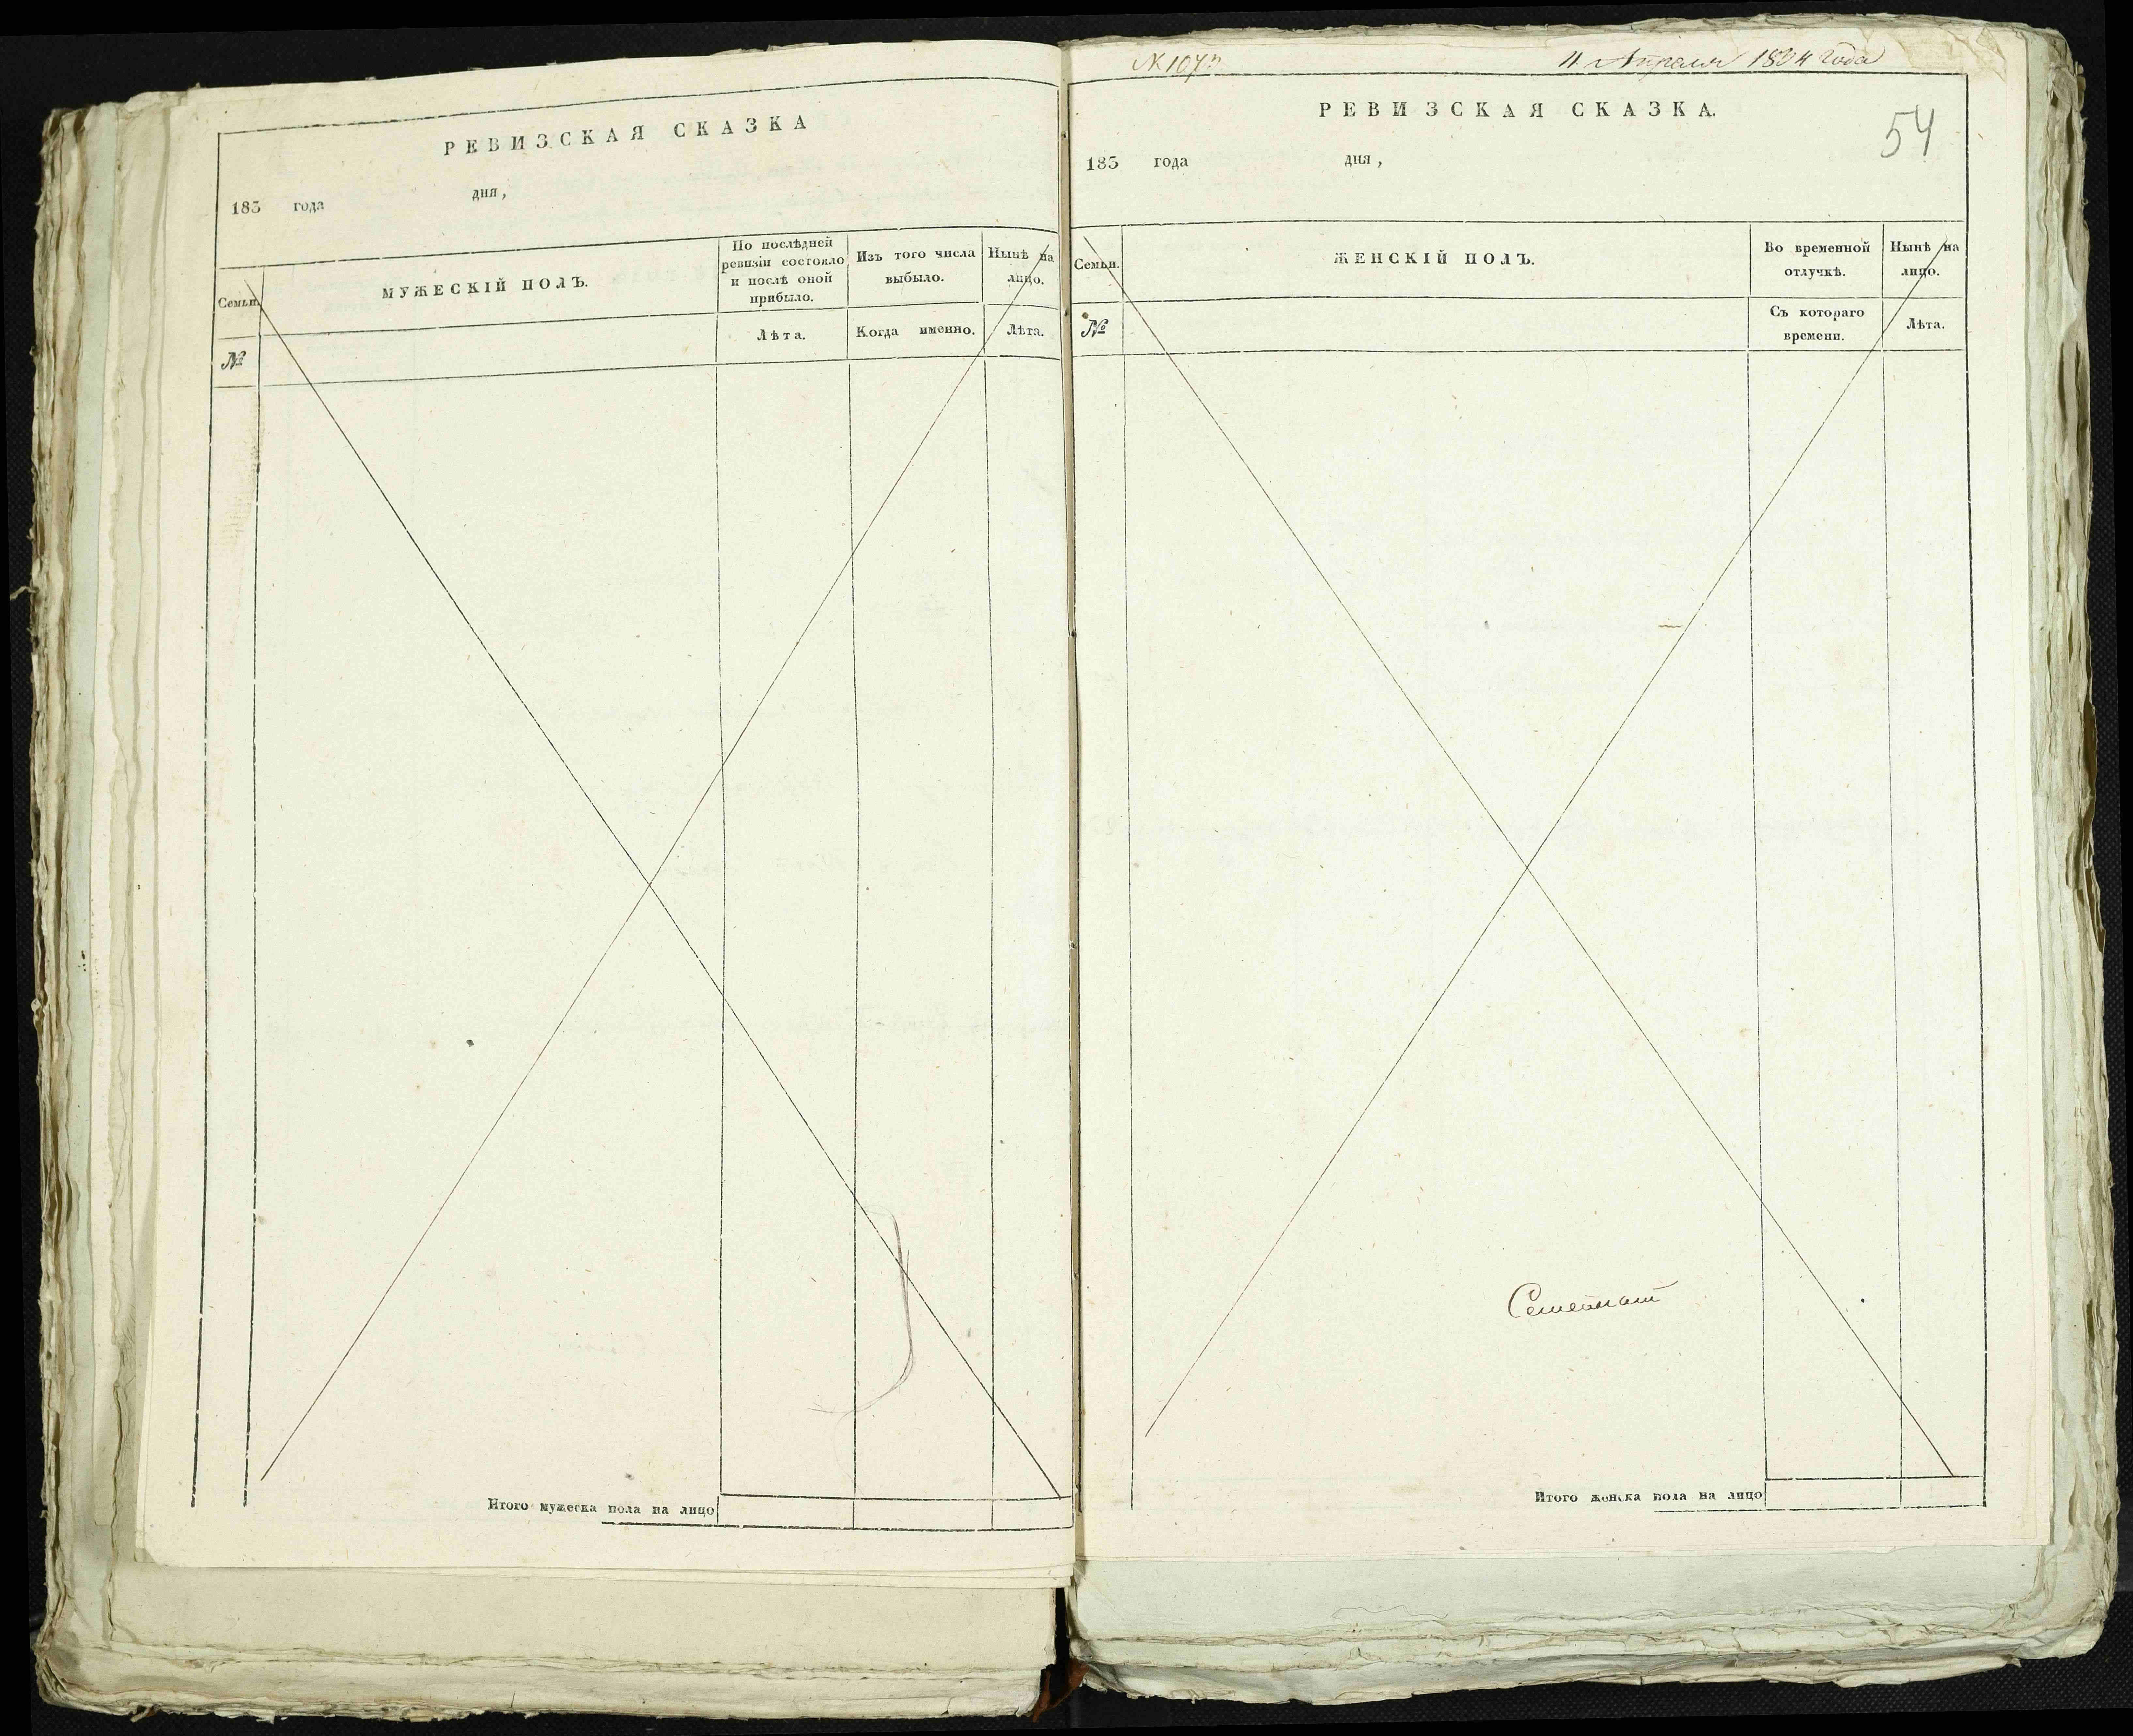 РЕВИЗСКАЯ СКАЗКА
183 года дня,
Семьи.
МУЖЕСКІЙ ПОЛЪ.
По послѣдней ревизіи состояло и послѣ оной прибыло.
Изъ того числа выбыло.
Нынѣ на лицо.
№
Лѣта.
Когда именно.
Лѣта.
Итого мужеска пола на лицо
11 Апреля 1834 года
РЕВИЗСКАЯ СКАЗКА.
54
183 года дня,
Семьи.
ЖЕНСКІЙ ПОЛЪ.
Во временной отлучкѣ.
Нынѣ на лицо.
№
Съ котораго времени.
Лѣта.
Итого женска пола на лицо